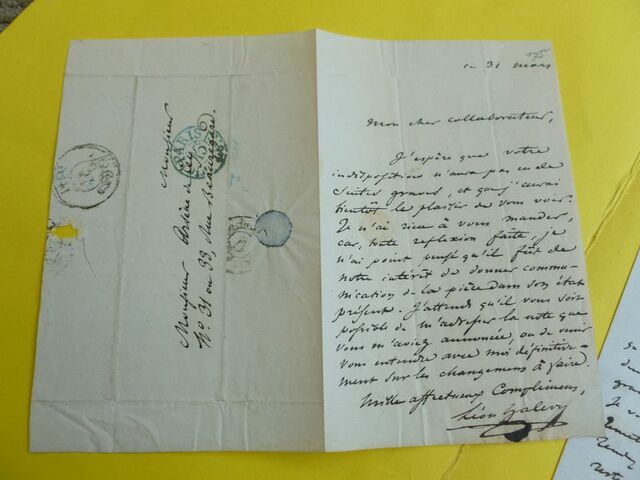 195
ce 31 mars
Mon cher collaborateur,
J'espère que votre
indisposition n'aura pas eu de
suites graves, et que j'aurai
bientôt le plaisir de vous voir.
Je n'ai rien à vous mander,
car, toute reflexion faite, je
n'ai point pensé qu'il fût de
notre intérêt de donner commu-
nication de la pièce dans son état
présent. J'attends qu'il vous soit
possible de m'adresser la note que
vous m'aviez annoncée, ou de venir
vous entendre avec moi définitive-
ment sur les changemens à faire.
Mille affectueux Complimens,
Léon Halévy
Monsieur
Monsieur de
No 31 ou 33, rue
PARIS